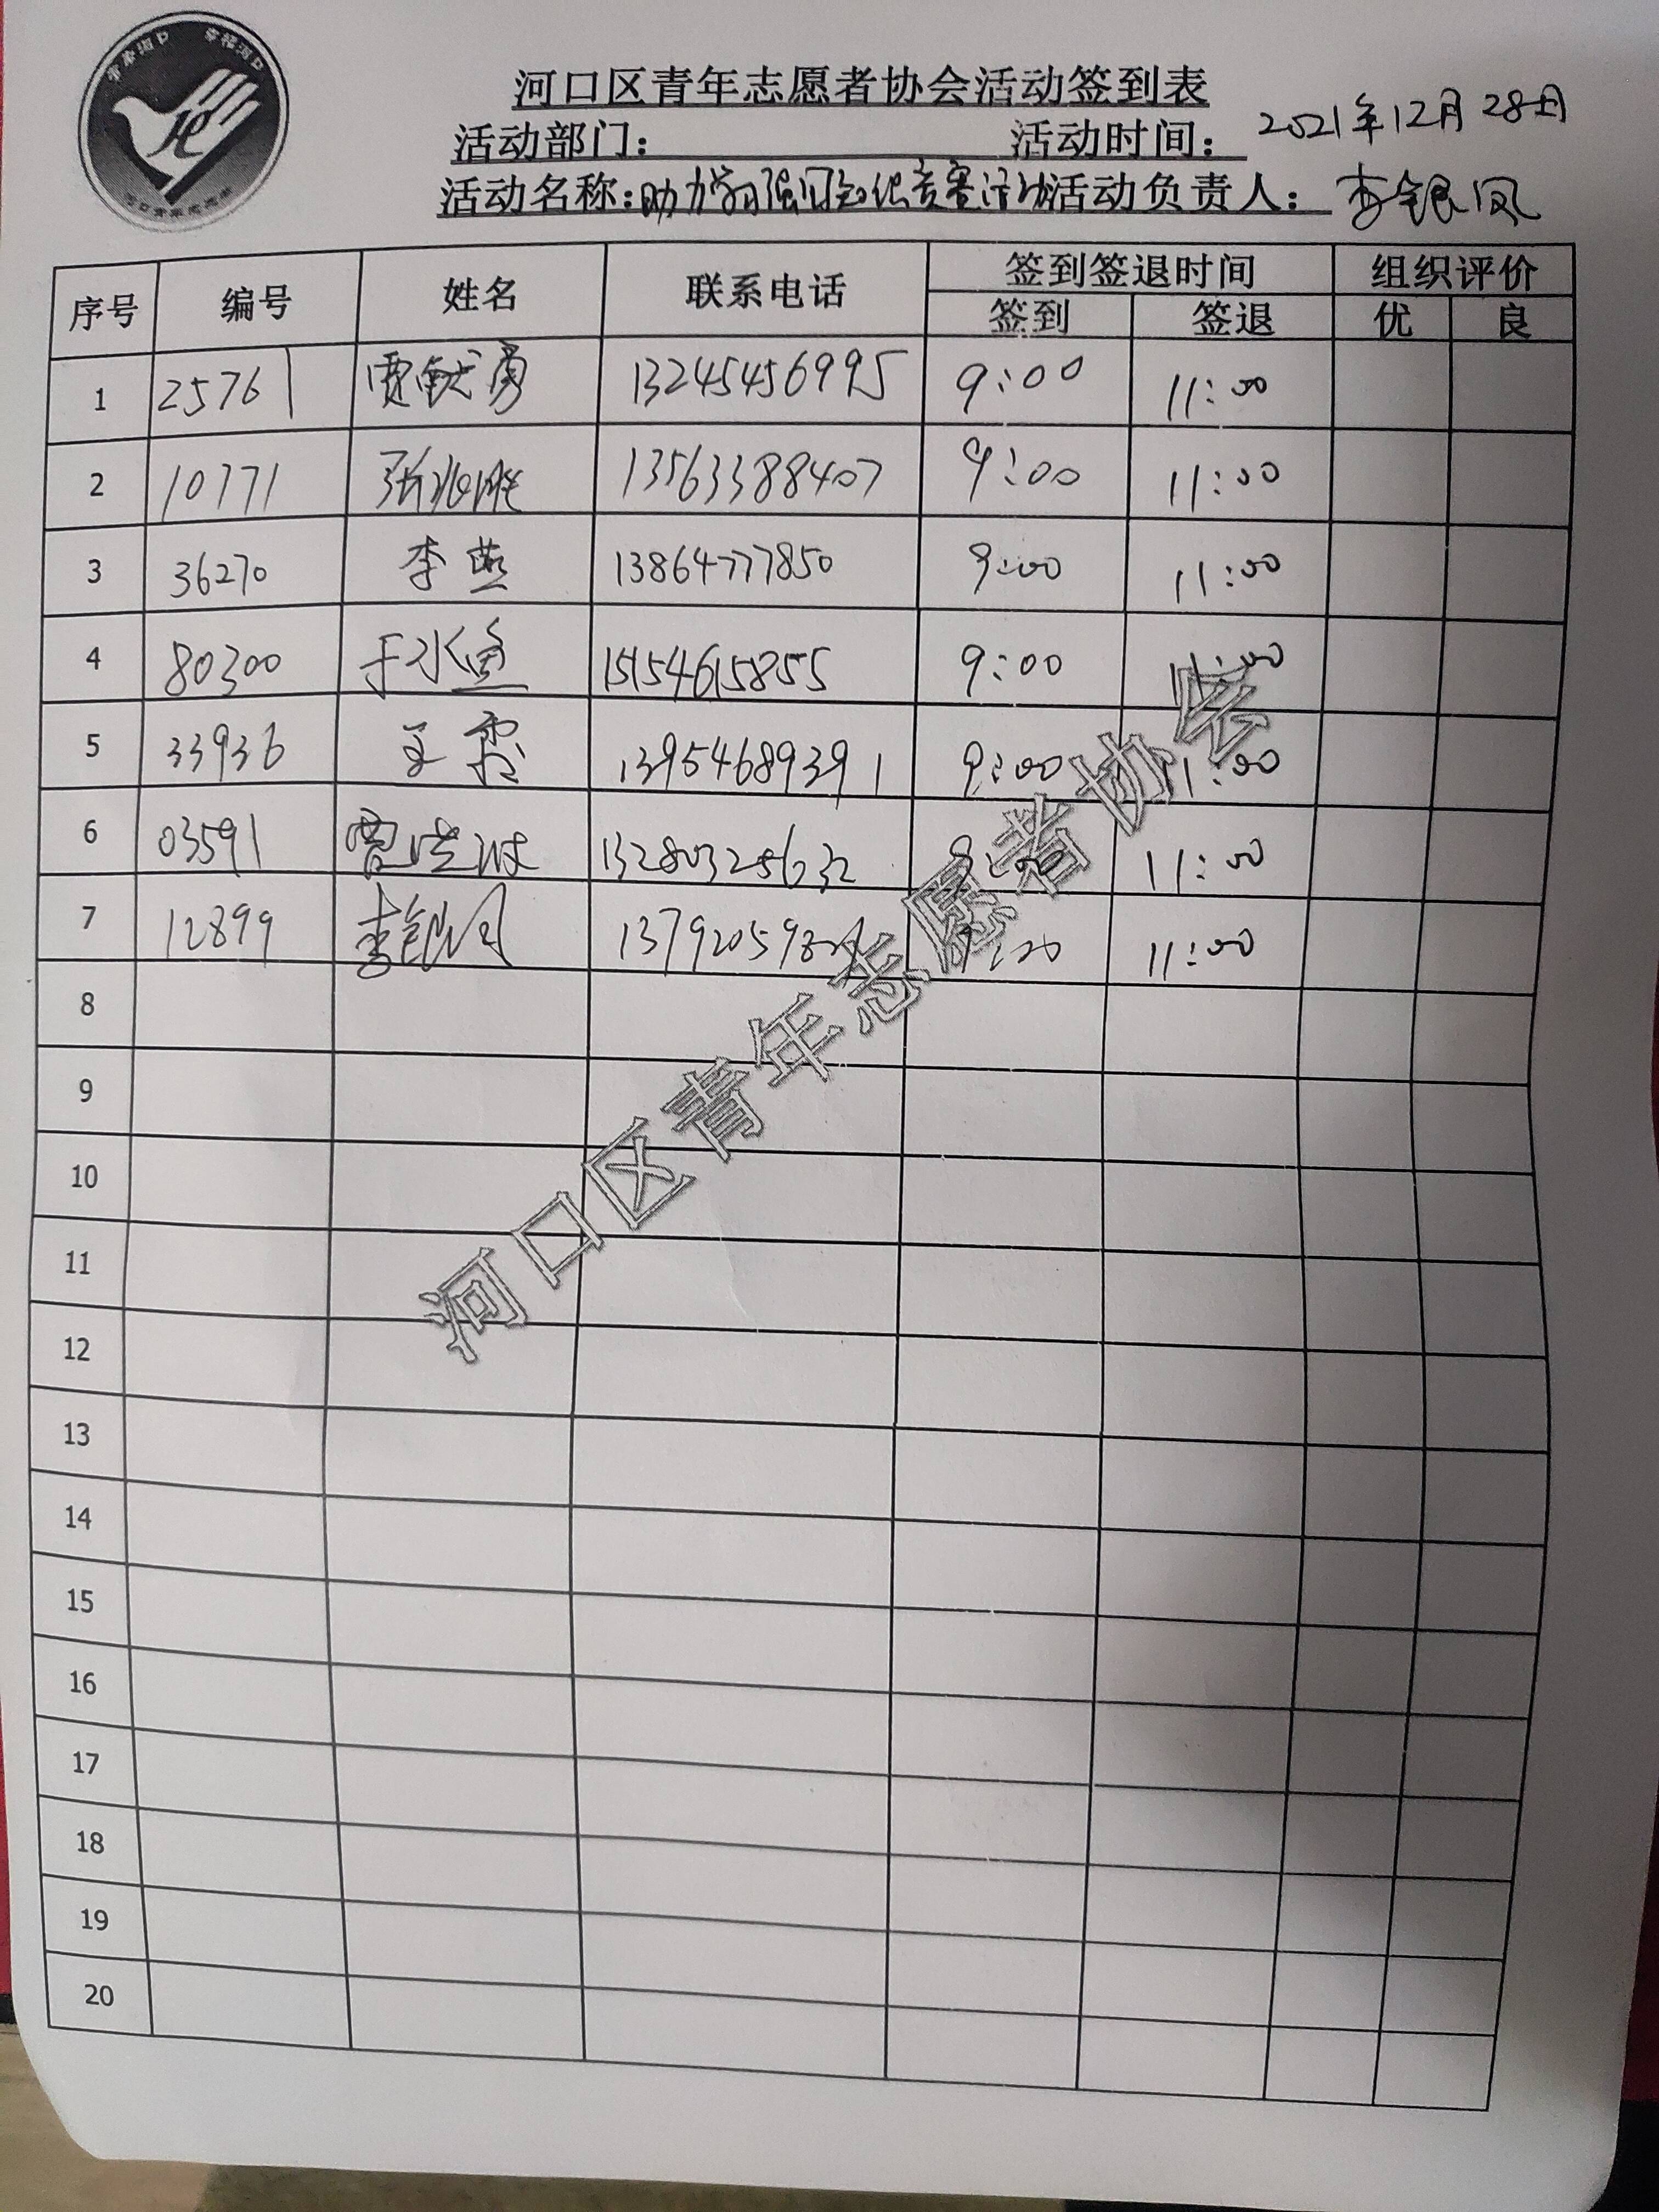 河口区青年志愿者协会活动签到表
活动部门： 活动时间：2021年12月28日
活动名称：助力学习强国 竞赛活动 活动负责人：李银凤
序号 编号 姓名 联系电话 签到签退时间 组织评价
签到 签退 优 良
1 25761 贾献勇 13245456995 9:00 11:00
2 10771 13563388407 9:00 11:00
3 36270 李燕 13864777850 9:00 11:00
4 80300 于水鱼 15154615855 9:00 11:00
5 33936 王霞 13954689391 9:00 11:00
6 03591 9:00 11:00
7 12899 李银凤 11:00
8
9
10
11
12
13
14
15
16
17
18
19
20
河口区青年志愿者协会